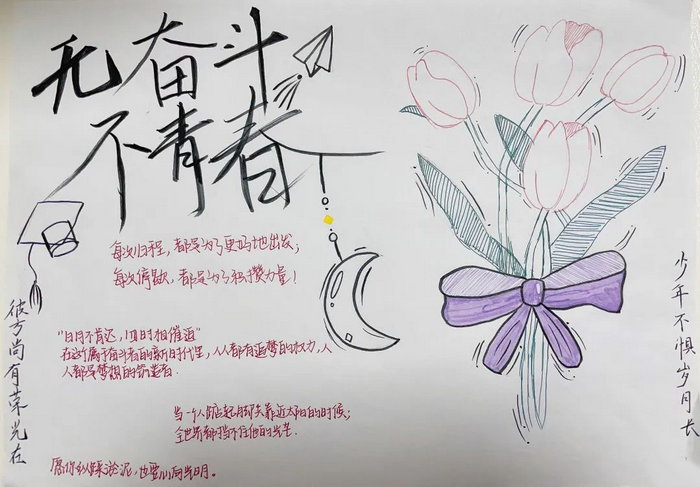 无奋斗
不青春
每次归程，都是为了更好地出发；
每次停歇，都是为了积攒力量！
“日月不肯迟，四时相催迫”
在这个属于奋斗者的新时代里，人人都有追梦的权力，人
人都是梦想的筑造者．
当一个人踮起脚尖靠近太阳的时候；
全世界都挡不住他的光芒．
愿你纵踩淤泥，也要心向光明。
彼方尚有荣光在
少年不惧岁月长